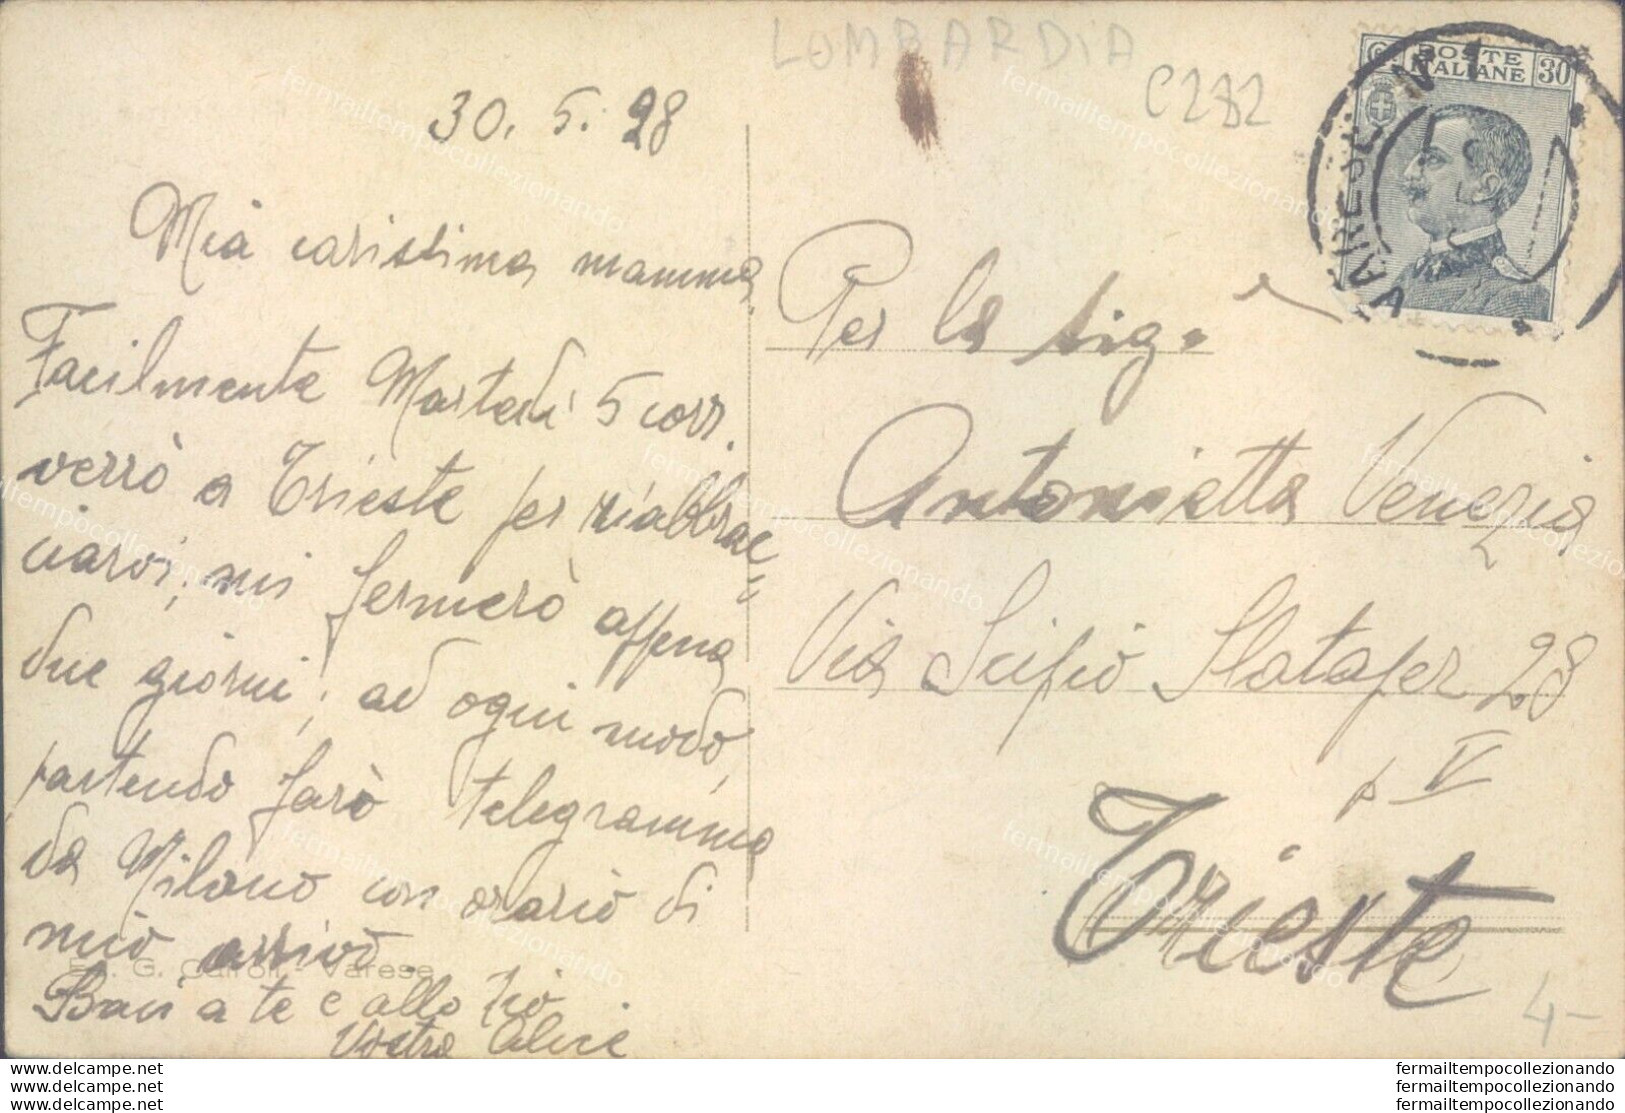 LOMBARDIA
C282
30. 5. 28
Mia carissima mamma,
Facilmente Martedì 5 corr.
verrò a Trieste per riabbrac=
ciarvi; mi fermerò appena
due giorni; ad ogni modo,
partendo farò telegramma
da Milano con orario di
mio arrivo.
Baci a te e allo zio
Vostro
Ed. G. Cairoli - Varese
POSTE
ITALIANE
30
VARESE
Per la sig.a
Antonietta Venezia
Via Scipio Slataper 28
p V
Trieste
4-
fermailtempocollezionando
www.delcampe.net
www.delcampe.net
www.delcampe.net
fermailtempocollezionando
fermailtempocollezionando
fermailtempocollezionando